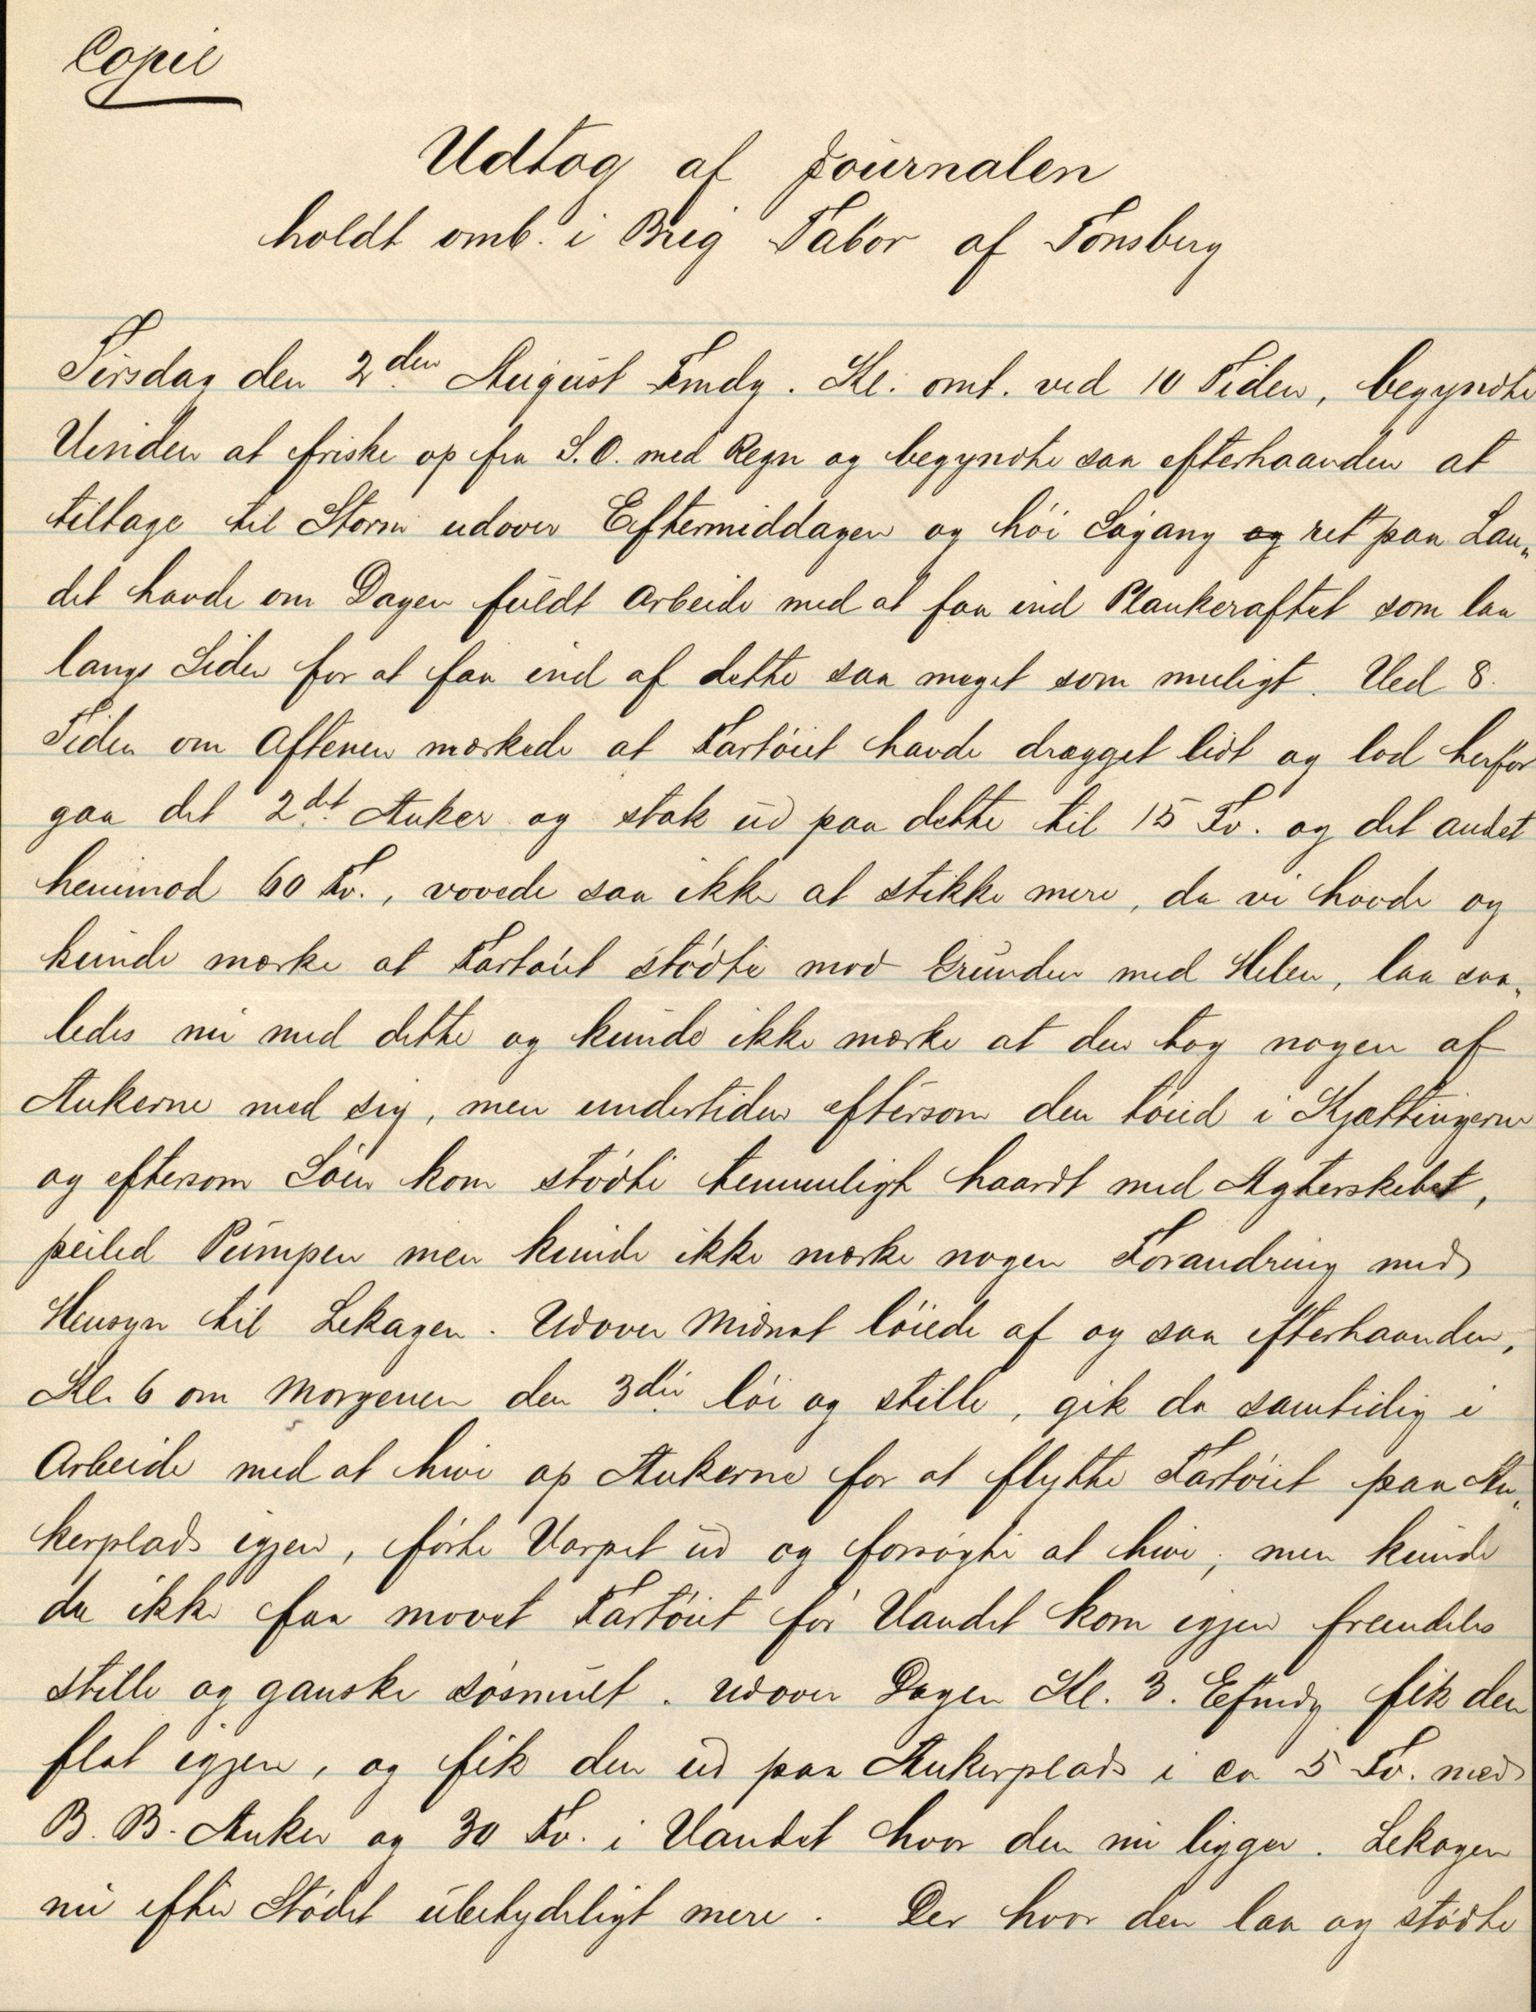 Copie
Udtog af Journalen
holdt omb. i Brig Tabor af Tønsberg
Tirsdag den 2den August Frmdg. Kl. omt. ved 10 Tiden, begyndte
Vinden at friske op fra S.O. med Regn og begyndte saa efterhaanden at
tiltage til Storm udover Eftermiddagen og høi Søgang og ret paa Lan„
det havde om Dagen fuldt Arbeide med at faa ind Plankeraftet som laa
langs Siden for at faa ind af dette saa meget som muligt. Ved 8
Tiden om Aftenen mærkede at Fartøiet havde drægget lidt og lod herfor
gaa det 2det Anker og stak ud paa dette til 15 Fv. og det andet
henimod 60 Fv., vovede saa ikke at stikke mere, da vi havde og
kunde mærke at Fartøiet stødte mod Grunden med Helen, laa saa„
ledes nu med dette og kunde ikke mærke at den tog nogen af
Ankerne med sig, men undertiden eftersom den tøied i Kjættingerne
og eftersom Søen kom stødte temmeligt haardt med Agterskibet,
peiled Pumpen men kunde ikke mærke nogen Forandring med
Hensyn til Lekagen. Udover Midnat løiede af og saa efterhaanden,
Kl. 6 om Morgenen den 3die løi og stille, gik da samtidig i
Arbeide med at hive op Ankerne for at flytte Fartøiet paa An„
kerplads igjen, førte Varpet ud og forsøgte at hive, men kunde
da ikke faa movet Fartøiet før Vandet kom igjen fremdeles
stille og ganske søsmult. Udover Dagen Kl. 3. Efmdg fik den
flot igjen, og fik den ud paa Ankerplads i ca 5 Fv. med
B. B. Anker og 30 Fv. i Vandet hvor den nu ligger. Lekagen
nu efter Stødet ubetydeligt mere. Der hvor den laa og stødte